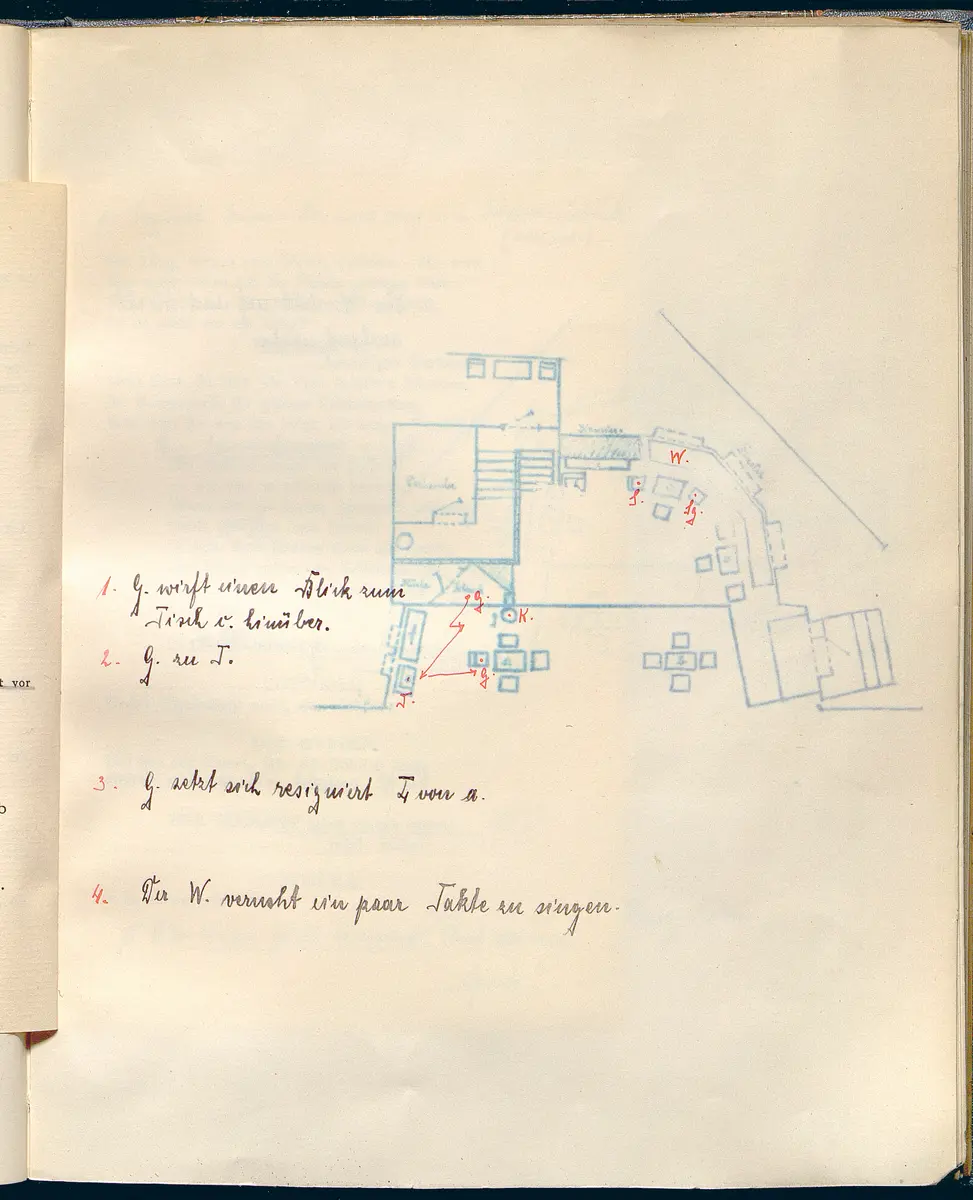 W.
S.
Sg.
1. G. wirft einen Blick zum
Tisch c. hinüber.
g.
K.
2. G. zu T.
g.
a
T.
3. G. setzt sich resigniert von a.
4. Der W. versucht ein paar Takte zu singen.
t vor